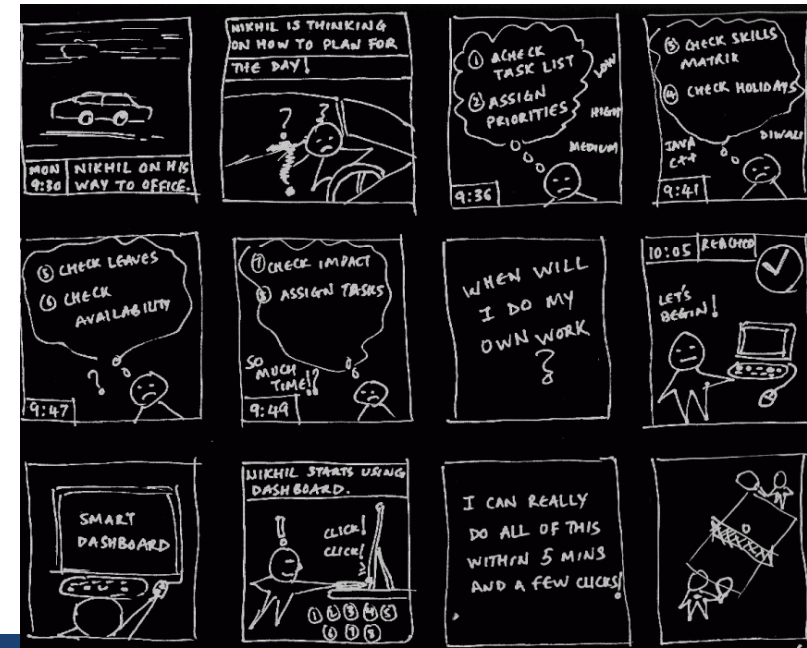 MON
9:30
NIKHIL ON HIS
WAY TO OFFICE.
NIKHIL IS THINKING
ON HOW TO PLAN FOR
THE DAY!
?
?
① ACHECK
TASK LIST
② ASSIGN
PRIORITIES
LOW
HIGH
MEDIUM
9:36
③ CHECK SKILLS
MATRIX
④ CHECK HOLIDAYS
JAVA
C++
DIWALI
9:41
⑤ CHECK LEAVES
⑥ CHECK
AVAILABILITY
?
9:47
⑦ CHECK IMPACT
⑧ ASSIGN TASKS
SO
MUCH
TIME!?
9:49
WHEN WILL
I DO MY
OWN WORK
?
10:05
REACHED
LET'S
BEGIN!
SMART
DASHBOARD
NIKHIL STARTS USING
DASHBOARD.
!
CLICK!
CLICK!
① ② ③ ④ ⑤
⑥ ⑦ ⑧
I CAN REALLY
DO ALL OF THIS
WITHIN 5 MINS
AND A FEW CLICKS!